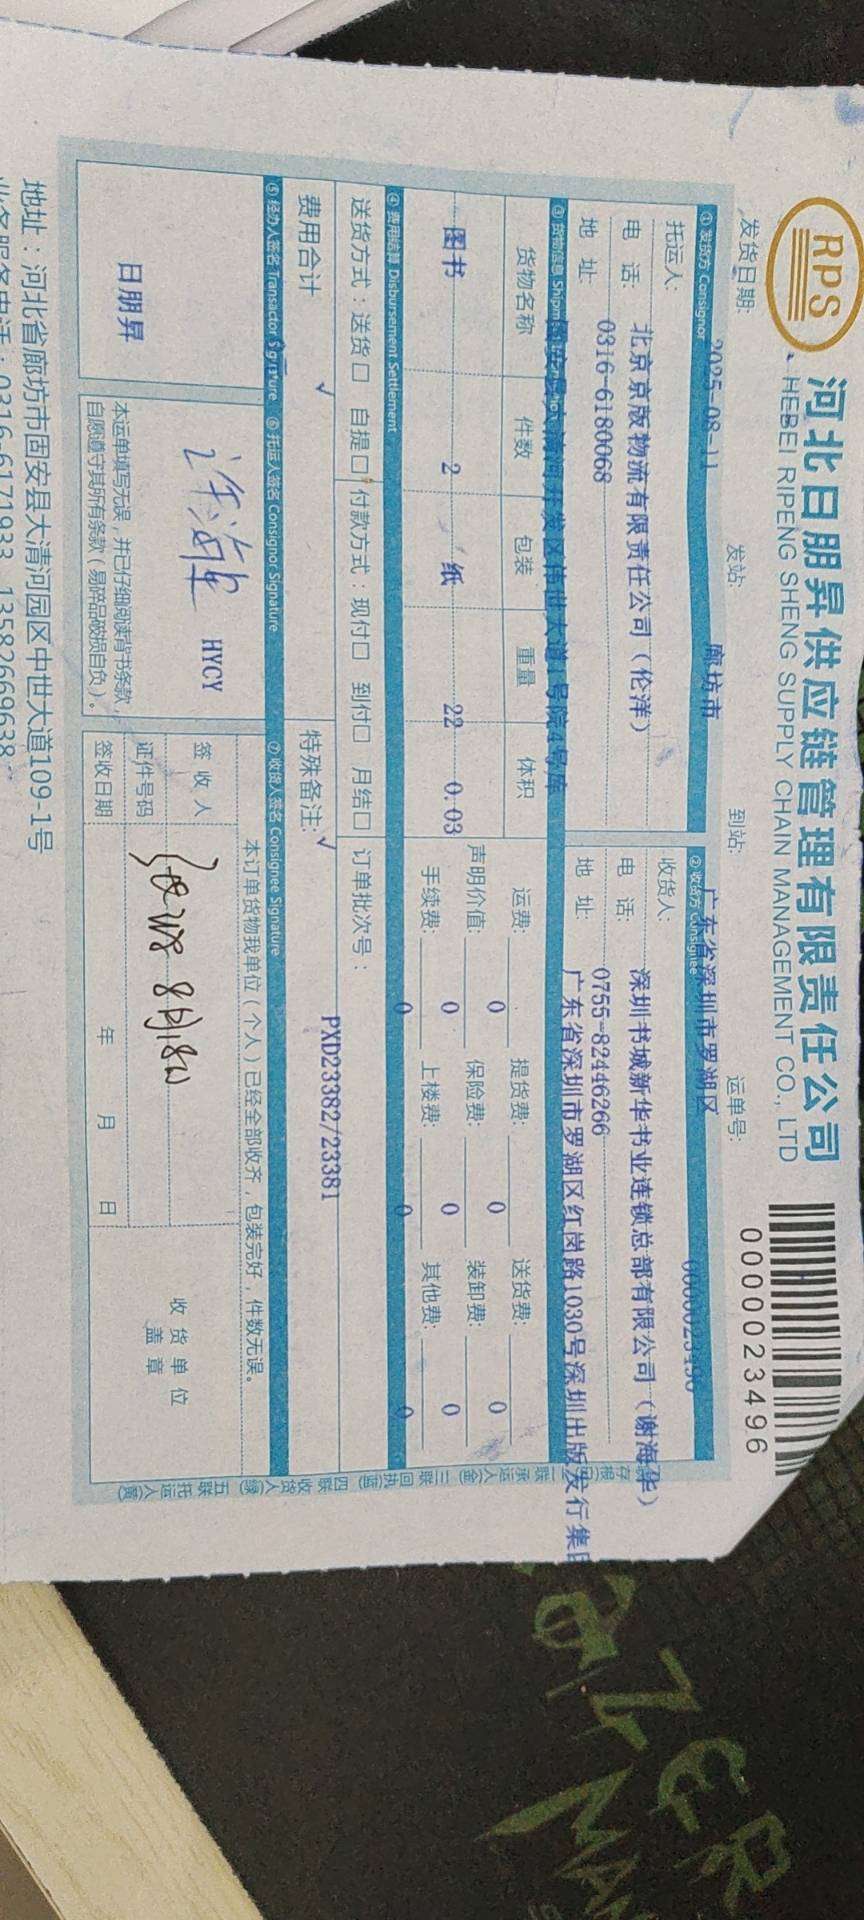 RPS
河北日朋昇供应链管理有限责任公司
HEBEI RIPENG SHENG SUPPLY CHAIN MANAGEMENT CO., LTD
0000023496
发货日期: 2025-08-11 发站: 廊坊市 到站: 广东省深圳市罗湖区 运单号: 0000023496
① 发货方 Consignor ② 收货方 Consignee
托运人: 北京京版物流有限责任公司（伦洋） 收货人: 深圳书城新华书业连锁总部有限公司（谢海华）
电 话: 0316-6180068 电 话: 0755-82446266
地 址: 地 址: 广东省深圳市罗湖区红岗路1030号深圳出版发行集团
号院4号库
③ 货物信息
货物名称 件数 包装 重量 体积 运费: 0 提货费: 0 送货费: 0
图书 2 纸 22 0.03 声明价值: 0 保险费: 0 装卸费: 0
手续费: 0 上楼费: 0 其他费: 0
④ 费用结算 Disbursement Settlement
送货方式：送货□ 自提□ 付款方式：现付□ 到付□ 月结□ 订单批次号：
PXD23382/23381
费用合计 √ 特殊备注: √
⑤ 经办人签名 Transactor Signature ⑥ 托运人签名 Consignor Signature ⑦ 收货人签名 Consignee Signature
日朋昇
HYCY
本运单填写无误，并已仔细阅读背书条款
自愿遵守其所有条款（易碎品破损自负）。
本订单货物我单位（个人）已经全部收齐，包装完好，件数无误。
签 收 人
证件号码
签收日期 年 月 日
收货单位
盖 章
地址：河北省廊坊市固安县大清河园区中世大道109-1号
业务服务电话：0316-6171933 13582669638